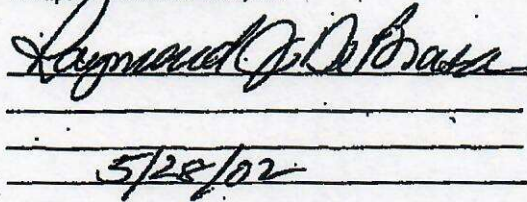 Raymond J. DeBrasa
5/28/02